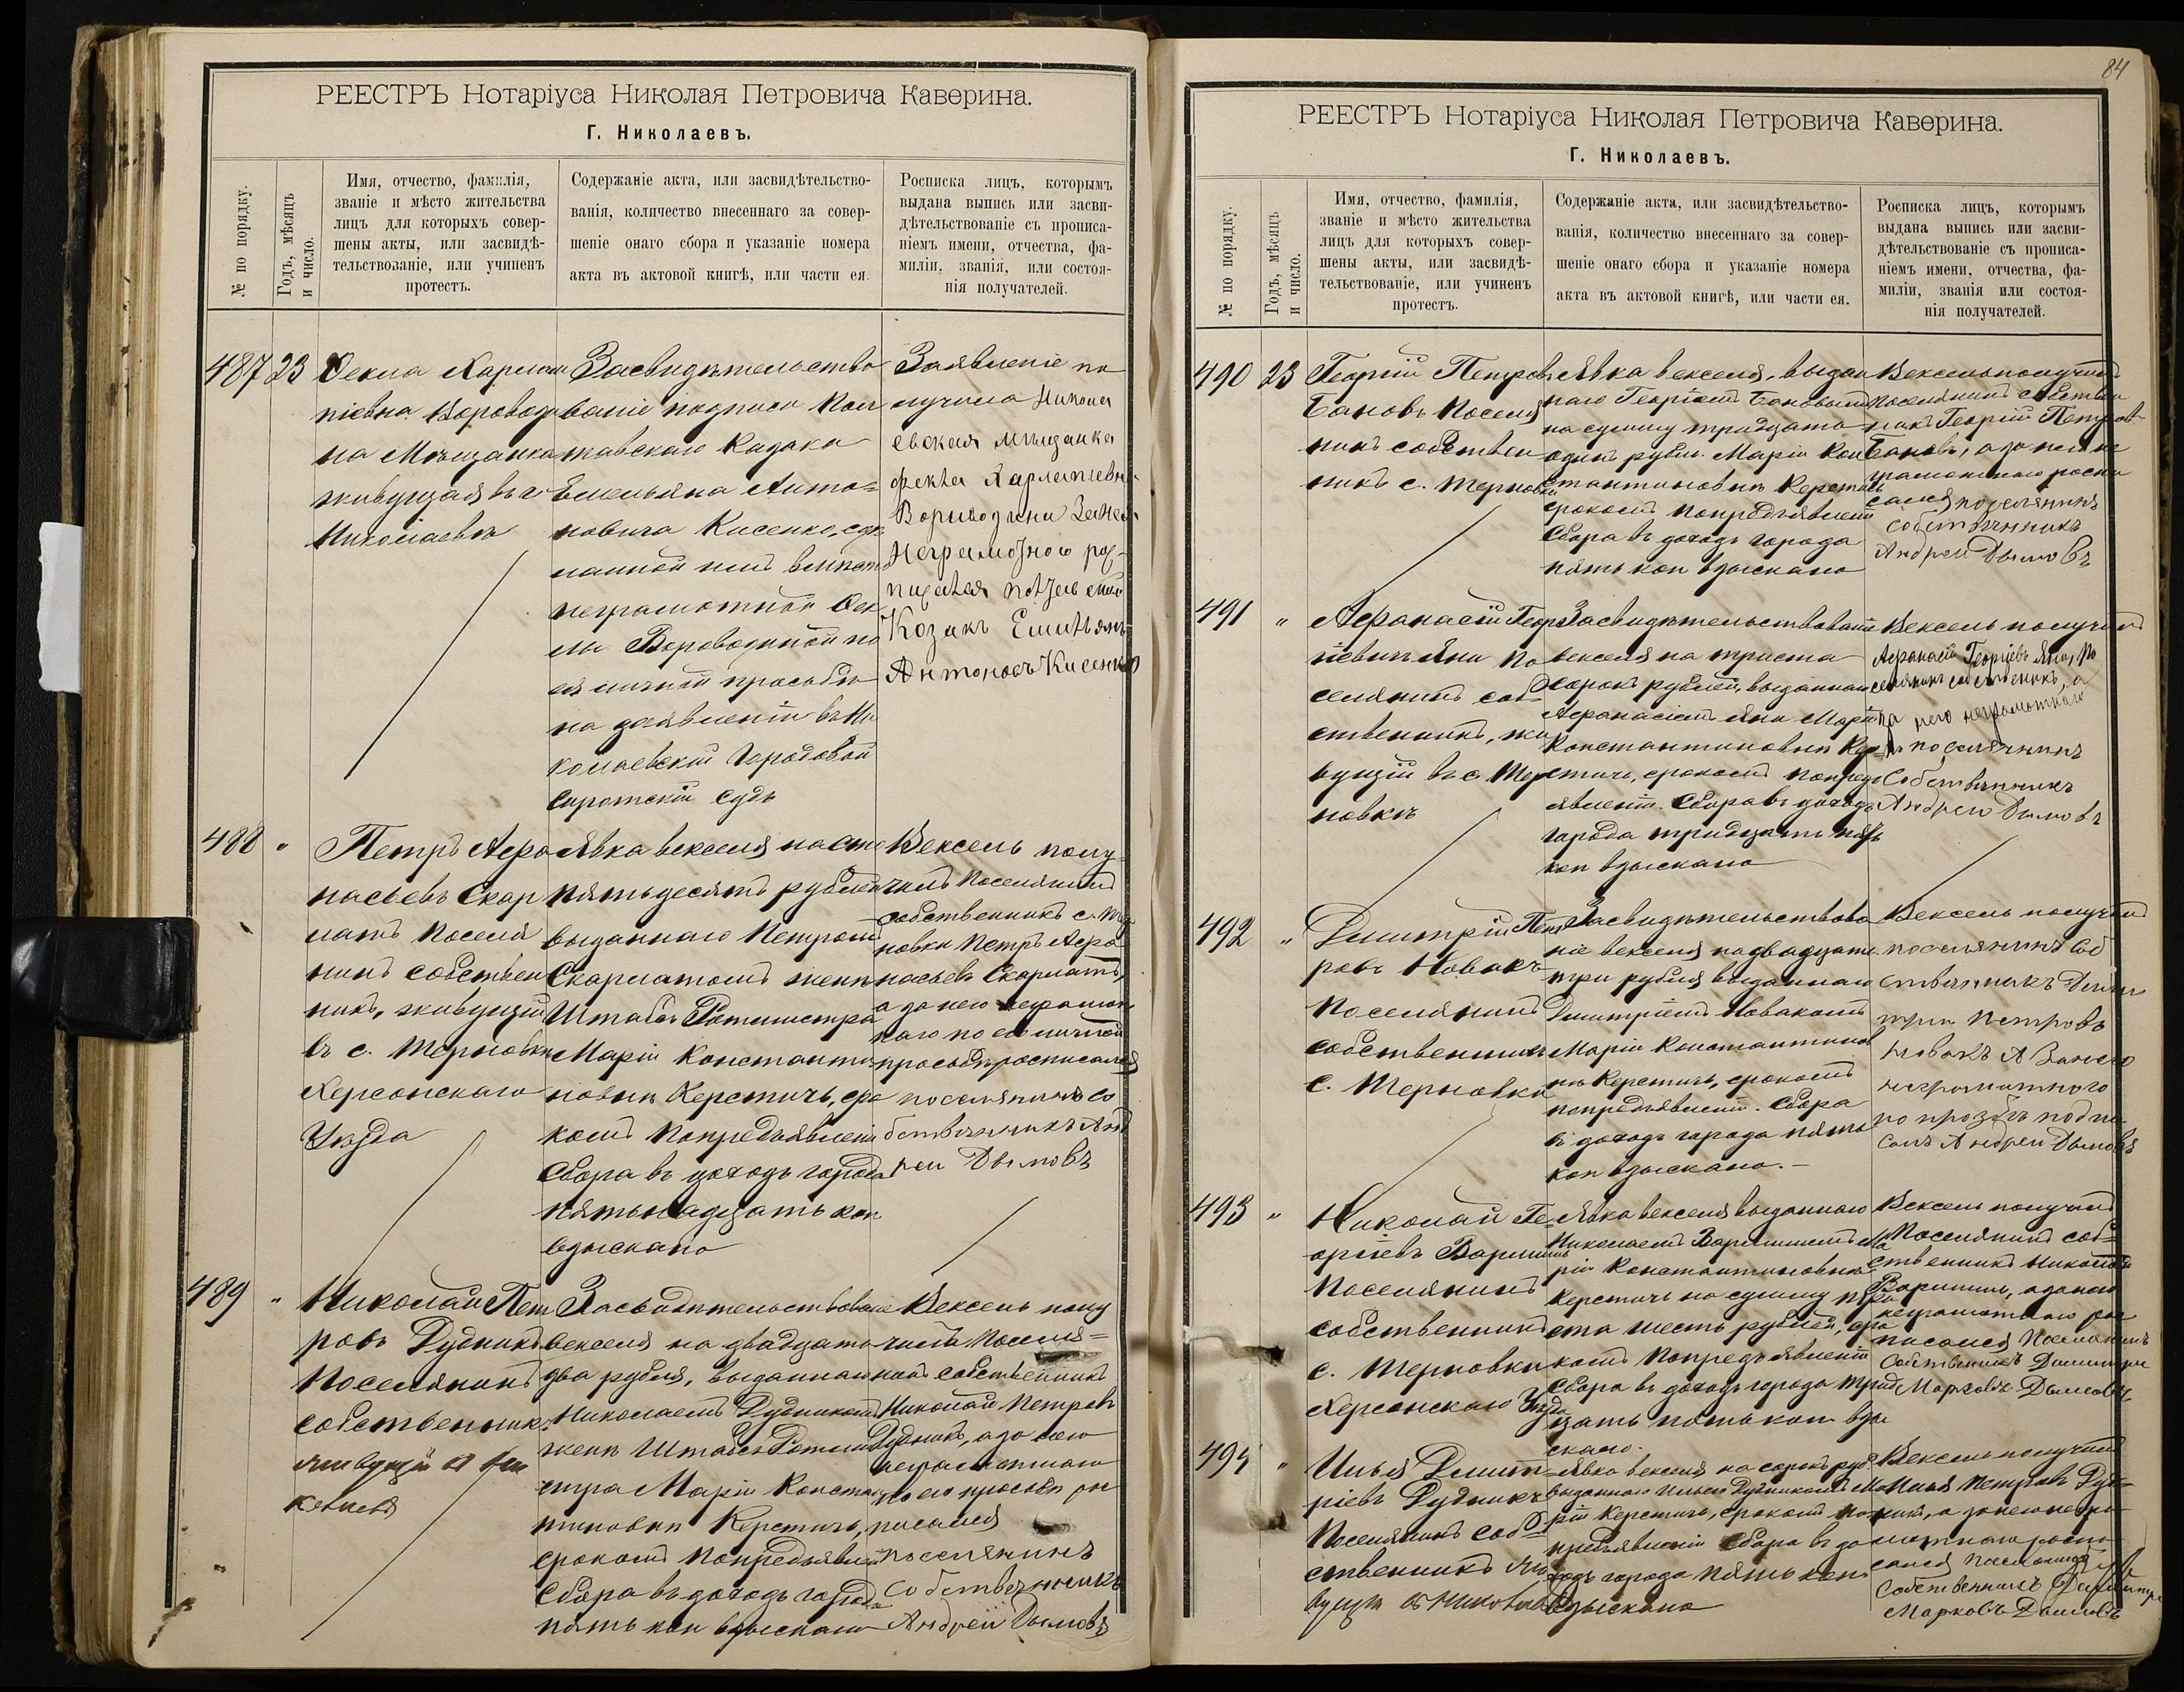 РЕЕСТРЪ Нотаріуса Николая Петровича Каверина.
Г. Николаевъ.
№ по порядку.
Годъ, мѣсяцъ
и число.
Имя, отчество, фамилія,
званіе и мѣсто жительства
лицъ для которыхъ совер-
шены акты, или засвидѣ-
тельствованіе, или учиненъ
протестъ.
Содержаніе акта, или засвидѣтельство-
ванія, количество внесеннаго за совер-
шеніе онаго сбора и указаніе номера
акта въ актовой книгѣ, или части ея.
Росписка лицъ, которымъ
выдана выпись или засви-
дѣтельствованіе съ прописа-
ніемъ имени, отчества, фа-
миліи, званія, или состоя-
нія получателей.
487 23
Ѳекла Харлам
піевна Вороводи
на Мѣщанка
живущая въ г
Николаевѣ
Засвидѣтельство
ваніе подписи
тавскаго Казака
Емельяна Анто=
новича Кисенко,
неграмотной Ѳек
лы Вороводиной по
ея личной просьбѣ
на заявленіи въ Ни
колаевскій Городовой
Сиротскій Судъ
Заявленіе по
лучила Никола
евская мѣщанка
Козакъ
Антоновъ Кисенко
488 "
Петръ Афа
насьевъ Скар
латъ Поселя
нинъ собствен
никъ, живущій
въ с. Терновкѣ
Херсонскаго
Уѣзда
Явка векселя на сто
пятьдесятъ рублей
выданнаго Петромъ
Скарлатомъ женѣ
Штабсъ Ротмистра
Маріи Константи
новнѣ Керстичъ, сро
комъ по предъявленіи
Сбора въ доходъ города
пятьнадцать коп
взыскано
Вексель полу
чилъ Поселянинъ
собственникъ с. Тер
новки Петръ Афа
насьевъ Скарлатъ,
а за него неграмот
наго по его личной
просьбѣ росписался
поселянинъ со
бственникъ Анд
реи Дымовъ
489 "
Николай Пет
ровъ Дудникъ
Поселянинъ
собственникъ
Засвидѣтельствованіе
векселя на двадцать
два рубля, выданнаго
Николаемъ Дудникомъ
женѣ Штабсъ Ротми
стра Маріи Констан
тиновнѣ Керстичъ,
срокомъ по предъявленіи
Сбора въ доходъ города
пять коп взыскано
Вексель полу
чилъ Поселя=
нинъ собственникъ
Николай Петровъ
Дудникъ, а за него
неграмотнаго
по его просьбѣ рос
писался
поселянинъ
собственникъ
Андрей Дымовъ
84
РЕЕСТРЪ Нотаріуса Николая Петровича Каверина.
Г. Николаевъ.
№ по порядку.
Годъ, мѣсяцъ
и число.
Имя, отчество, фамилія,
званіе и мѣсто жительства
лицъ для которыхъ совер-
шены акты, или засвидѣ-
тельствованіе, или учиненъ
протестъ.
Содержаніе акта, или засвидѣтельство-
ванія, количество внесеннаго за совер-
шеніе онаго сбора и указаніе номера
акта въ актовой книгѣ, или части ея.
Росписка лицъ, которымъ
выдана выпись или засви-
дѣтельствованіе съ прописа-
ніемъ имени, отчества, фа-
миліи, званія или состоя-
нія получателей.
490 23
Георгій Петровъ
Бановъ Поселя
нинъ собствен
никъ с. Терновки
Явка векселя, выдан
наго Георгіемъ Бановымъ
на сумму тридцать
одинъ рубль Маріи Кон
стантиновнѣ Керстичъ
срокомъ по предъявленіи
Сбора въ доходъ города
пять коп взыскано
Вексель получилъ
Поселянинъ собствен
никъ Георгій Петровъ
Бановъ, а за него не
грамотнаго роспи
сался поселянинъ
собственникъ
Андреи Дымовъ
491 "
Афанасій Геор
гіевичъ Яни По
селянинъ соб=
ственникъ, жи
вущій въ с. Тер
новкѣ
Засвидѣтельствованіе
векселя на триста
сорокъ рублей, выданнаго
Афанасіемъ Яни Маріи
Константиновнѣ Кер=
стичъ, срокомъ по предъ
явленіи. Сбора въ доходъ
города тридцать пять
коп взыскано
Вексель получилъ
Афанасій Георгіевъ Яни, По
селянинъ собственникъ, а
за него неграмотнаго
поселянинъ
Собственникъ
Андреи Дымовъ
492 "
Димитрій Пет
ровъ Новакъ
Поселянинъ
собственникъ
с. Терновки
Засвидѣтельствова
ніе векселя на двадцать
три рубля выданнаго
Димитріемъ Новакомъ
Маріи Константинов
нѣ Керстичъ, срокомъ
по предъявленіи. Сбора
въ доходъ города пять
коп взыскано.—
Вексель получилъ
поселянинъ соб
ственникъ Дими
три Петровъ
Новакъ А за него
неграмотного
по прозбѣ подпи
салъ Андреи Дымовъ
493 "
Николай Ге=
оргіевъ
Поселянинъ
собственникъ
с. Терновки
Херсонскаго Уѣзда
Явка векселя выданнаго
Николаемъ Ма
ріи Константиновнѣ
Керстичъ на сумму три
ста шесть рублей, сро
комъ по предъявленіи
Сбора въ доходъ города трид
цать пять коп взы
скано.
Вексель получилъ
Поселянинъ соб=
ственникъ Николай
а за него
неграмотнаго рос
писался Поселянинъ
Собственникъ Димитри
Марковъ Дымовъ
494 "
Илья Димит=
ріевъ Дудникъ
Поселянинъ соб=
ственникъ Жи
вущи въ Николаевѣ
Явка векселя на сорокъ руб
выданнаго Ильею Дудникомъ Ма
ріи Керстичъ, срокомъ по
предъявленіи Сбора въ до
ходъ города пять коп
Взыскано
Вексель получилъ
Илья Петровъ Дуд=
никъ, а за него негра
мотнаго роспи
сался Поселянинъ
Собственникъ Димитри
Марковъ Дымовъ